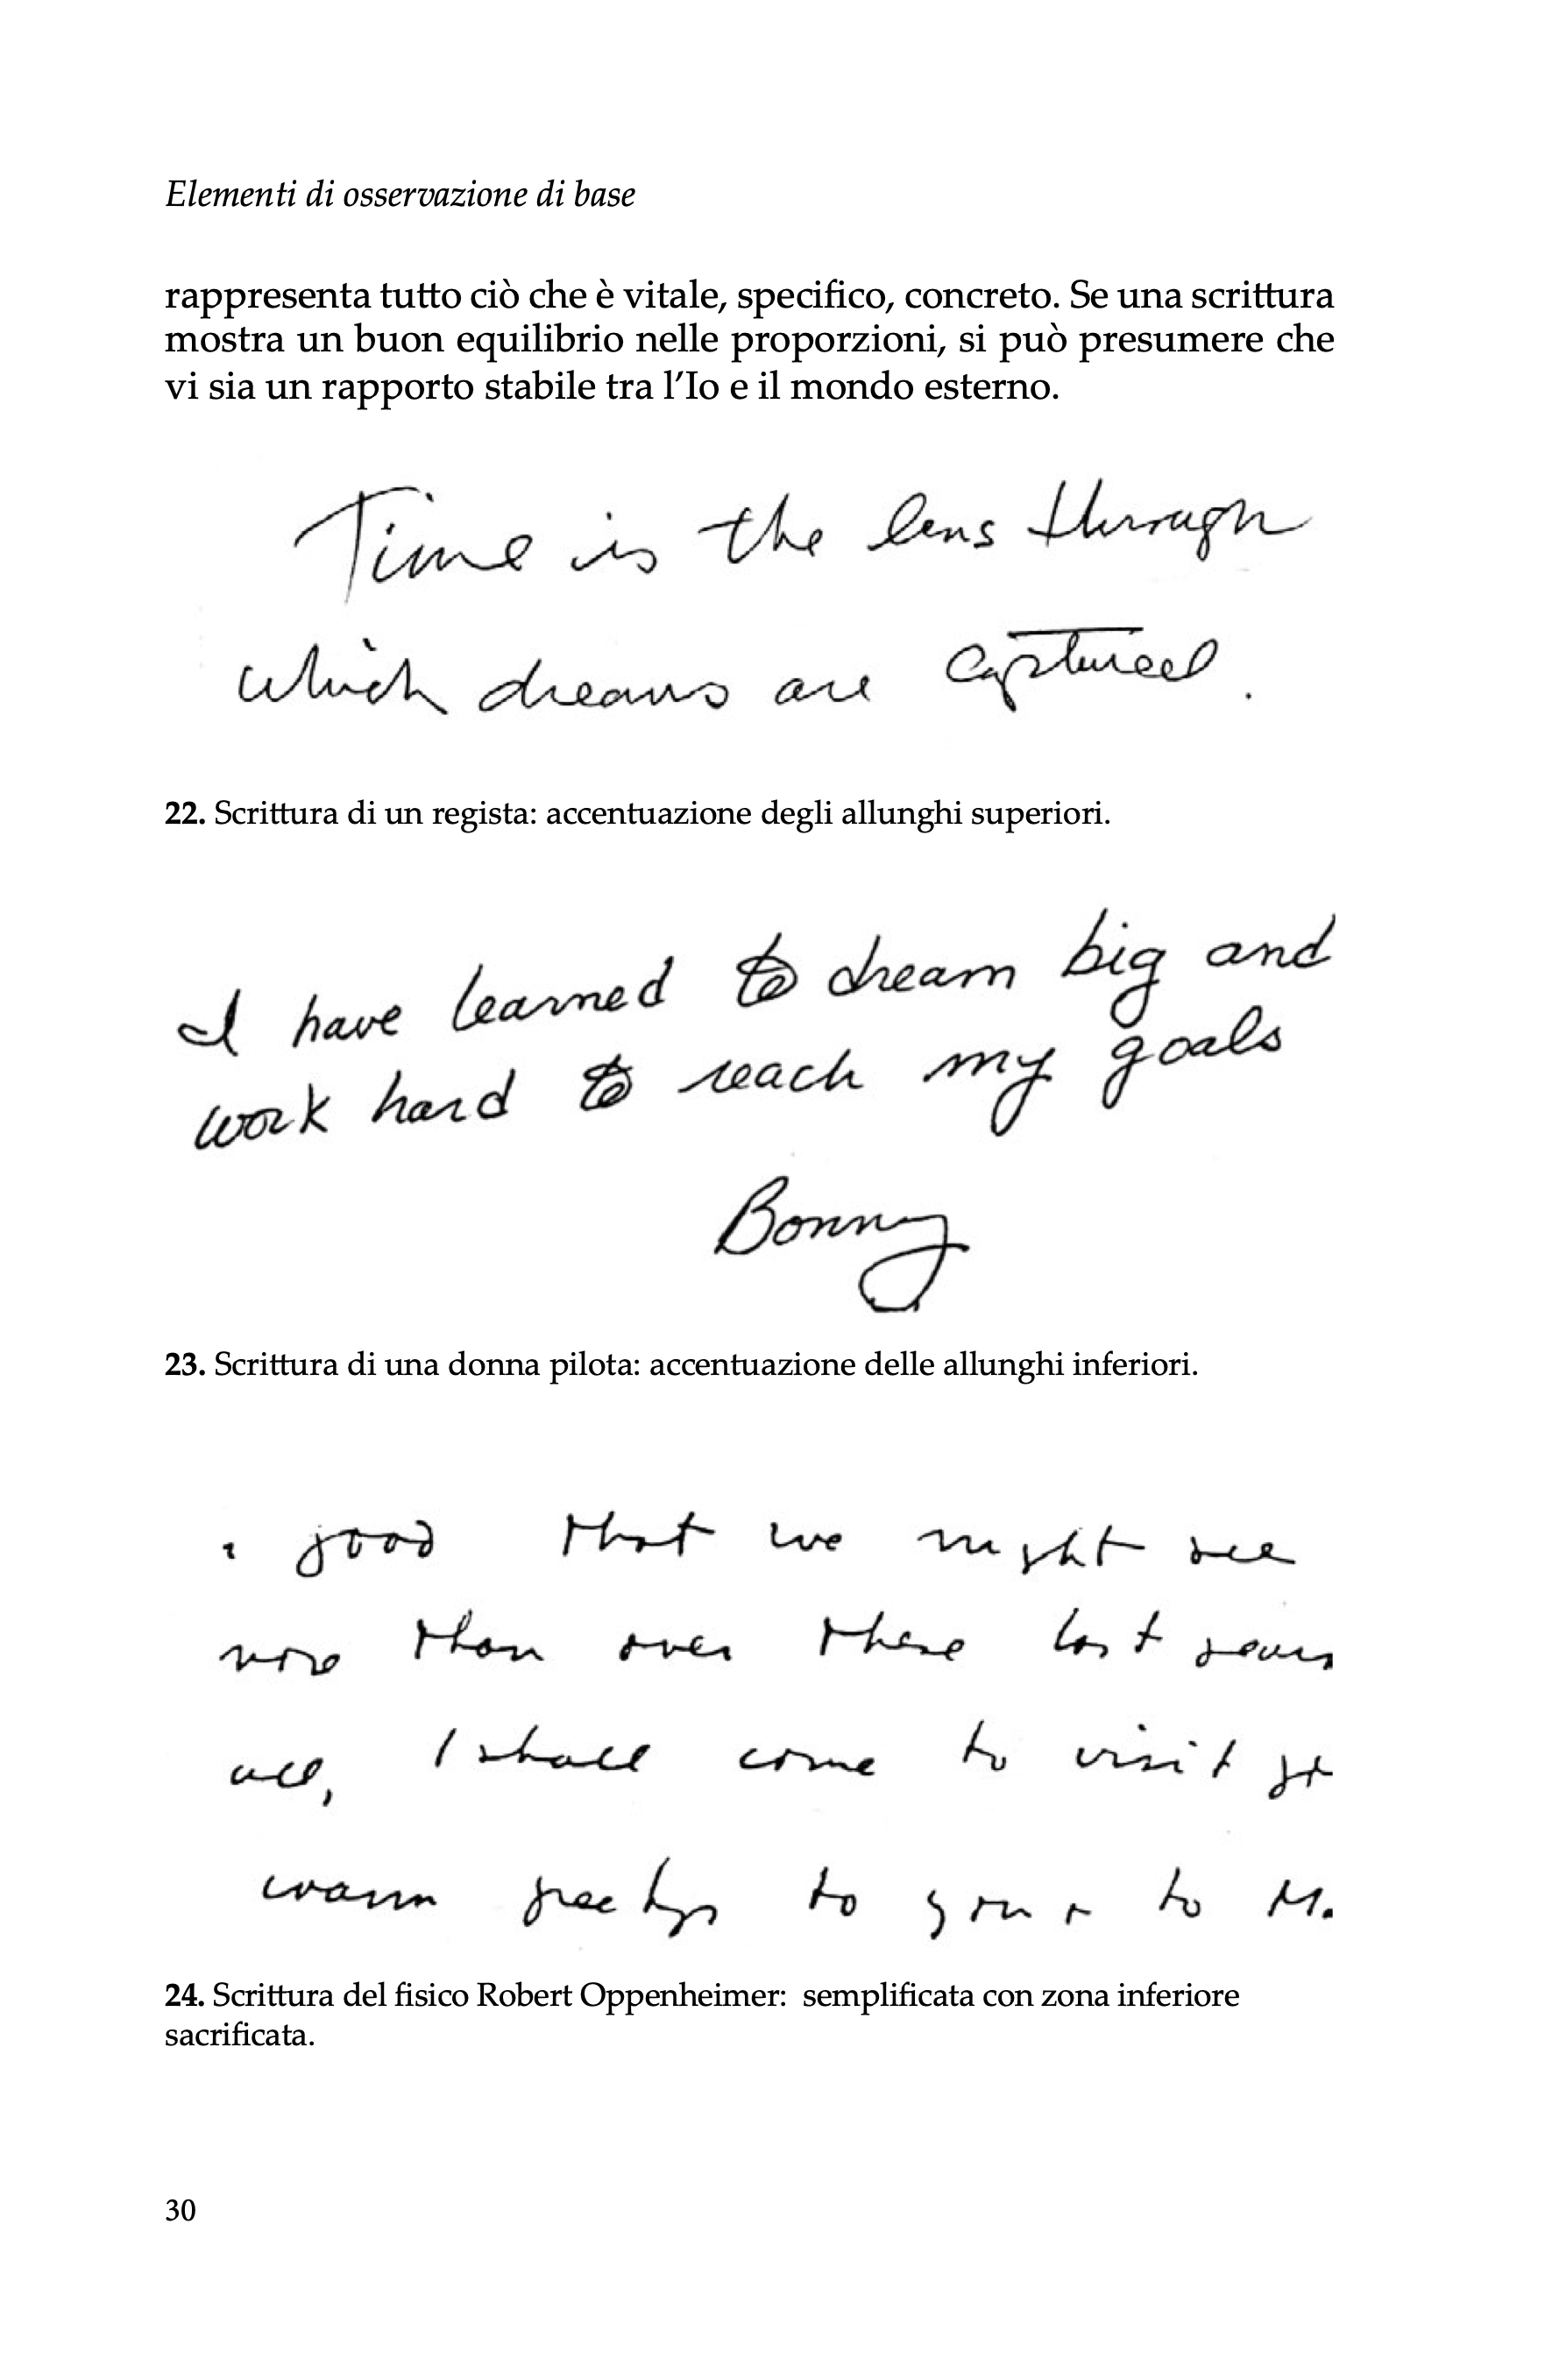 Elementi di osservazione di base
rappresenta tutto ciò che è vitale, specifico, concreto. Se una scrittura
mostra un buon equilibrio nelle proporzioni, si può presumere che
vi sia un rapporto stabile tra l'Io e il mondo esterno.
Time is the lens through
which dreams are captured.
22. Scrittura di un regista: accentuazione degli allunghi superiori.
I have learned to dream big and
work hard to reach my goals
Bonny
23. Scrittura di una donna pilota: accentuazione delle allunghi inferiori.
good that we might see
more than over these last years
all, I shall come to visit
warm greetings to you to M.
24. Scrittura del fisico Robert Oppenheimer: semplificata con zona inferiore
sacrificata.
30